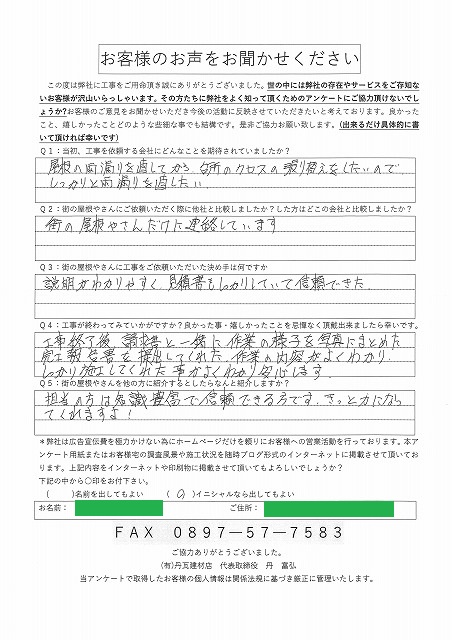 お客様のお声をお聞かせください
この度は弊社に工事をご用命頂き誠にありがとうございました。世の中には弊社の存在やサービスをご存知
ないお客様が沢山いらっしゃいます。その方たちに弊社をよく知って頂くためのアンケートにご協力頂けないでし
ょうか?お客様のご意見をお聞かせいただき今後の活動に反映させていただきたいと考えております。良かった
こと、嬉しかったことどのような些細な事でも結構です。是非ご協力お願い致します。(出来るだけ具体的に書
いて頂ければ幸いです)
Q1:当初、工事を依頼する会社にどのようなことを期待されていましたか?
屋根の雨漏りを直してから、台所のクロスの張り替えをしたいので
しっかりと雨漏りを直したい。
Q2:街の屋根やさんにご依頼いただく際に他社と比較しましたか?した方はどこの会社と比較しましたか?
街の屋根やさんだけに連絡しています
Q3:街の屋根やさんに工事をご依頼いただいた決め手は何ですか
説明がわかりやすく、見積書もしっかりしていて信頼できた。
Q4:工事が終わってみていかがですか?良かった事・嬉しかったことを忌憚なく頂戴出来ましたら幸いです。
工事終了後、請求書と一緒に作業の様子を写真にまとめた
完工報告書を提出してくれた。作業の内容がよくわかり、
しっかり施工してくれた事がよくわかり安心します。
Q5:街の屋根やさんを他の方に紹介するとしたらなんと紹介しますか?
担当の方は知識豊富で信頼できる方です。きっと力になっ
てくれますよ!
*弊社は広告宣伝費を極力かけない為にホームページだけを頼りにお客様への営業活動を行っております。本ア
ンケート用紙またはお客様宅の調査風景や施工状況を随時ブログ形式のインターネットに掲載させて頂いてお
ります。上記内容をインターネットや印刷物に掲載させて頂いてもよろしいでしょうか?
下記の中から〇印をお付下さい。
( )名前を出してもよい ( ○ )イニシャルなら出してもよい
お名前: ご住所:
FAX 0897-57-7583
ご協力ありがとうございました。
(有)丹瓦建材店 代表取締役 丹 富弘
当アンケートで取得したお客様の個人情報は関係法規に基づき厳正に管理いたします。